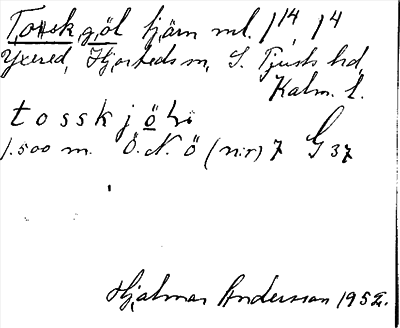 Torskgöl tjärn ml. 1¹⁴, 1⁴
Yxered, Hjorteds sn, S. Tjusts hd,
Kalm. l.
tosskjö̱l
1.500 m. Ö.N.Ö (n:r) 7 G 37
Hjalmar Andersson 1952.